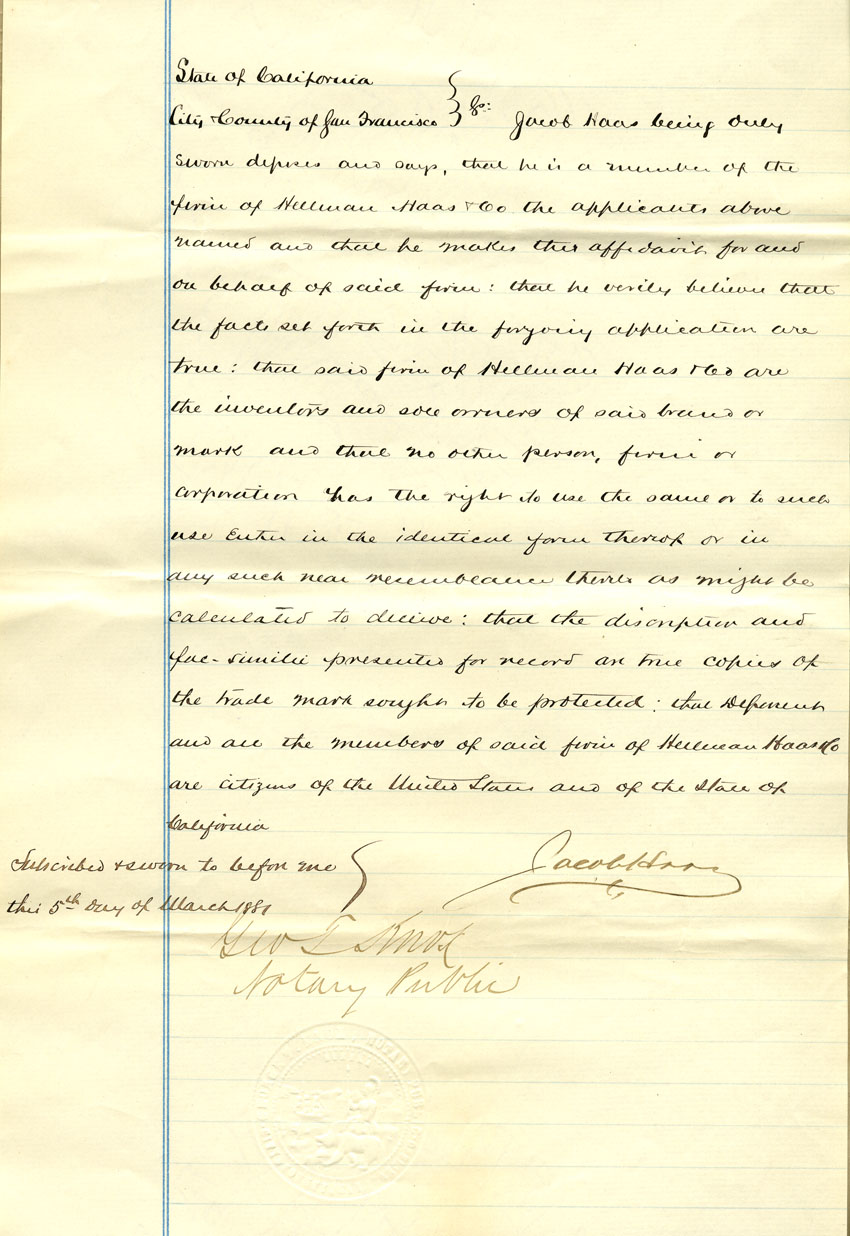 State of California
City & County of San Francisco } ss: Jacob Haas being duly
sworn deposes and says, that he is a member of the
firm of Hellman Haas & Co the applicants above
named and that he makes this affidavit for and
on behalf of said firm: that he verily believes that
the facts set forth in the forgoing application are
true: that said firm of Hellman Haas & Co are
the inventors and sole owners of said brand or
mark and that no other person, firm or
corporation has the right to use the same or to such
use Either in the identical form thereof or in
any such near resemblance thereto as might be
calculated to decieve: that the discription and
fac-similie presented for record are true copies of
the trade mark sought to be protected: that Deponent
and all the members of said firm of Hellman Haas & Co
are citizens of the United States and of the State of
California
Subscribed & sworn to before me }
this 5th Day of March 1881
Jacob Haas
Geo T Knox
Notary Public